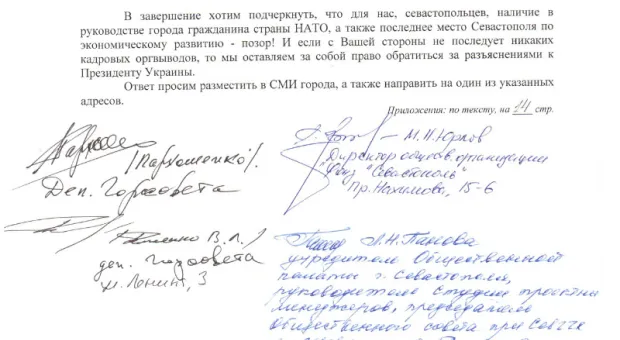 В завершение хотим подчеркнуть, что для нас, севастопольцев, наличие в
руководстве города гражданина страны НАТО, а также последнее место Севастополя по
экономическому развитию - позор! И если с Вашей стороны не последует никаких
кадровых оргвыводов, то мы оставляем за собой право обратиться за разъяснениями к
Президенту Украины.
Ответ просим разместить в СМИ города, а также направить на один из указанных
адресов.
Приложения: по тексту, на 14 стр.
/Пархоменко/.
Деп. Горсовета
– М.П. Юрлов
Директор обществ. организации
"Фонд "Севастополь"
Пр. Нахимова, 15-6
В.Л./
деп. Горсовета
ул. Ленина, 3
Л.Н. Панова
учредитель Общественной
палаты г. Севастополя,
руководитель Студии проектных
менеджеров, председатель
Общественного совета при